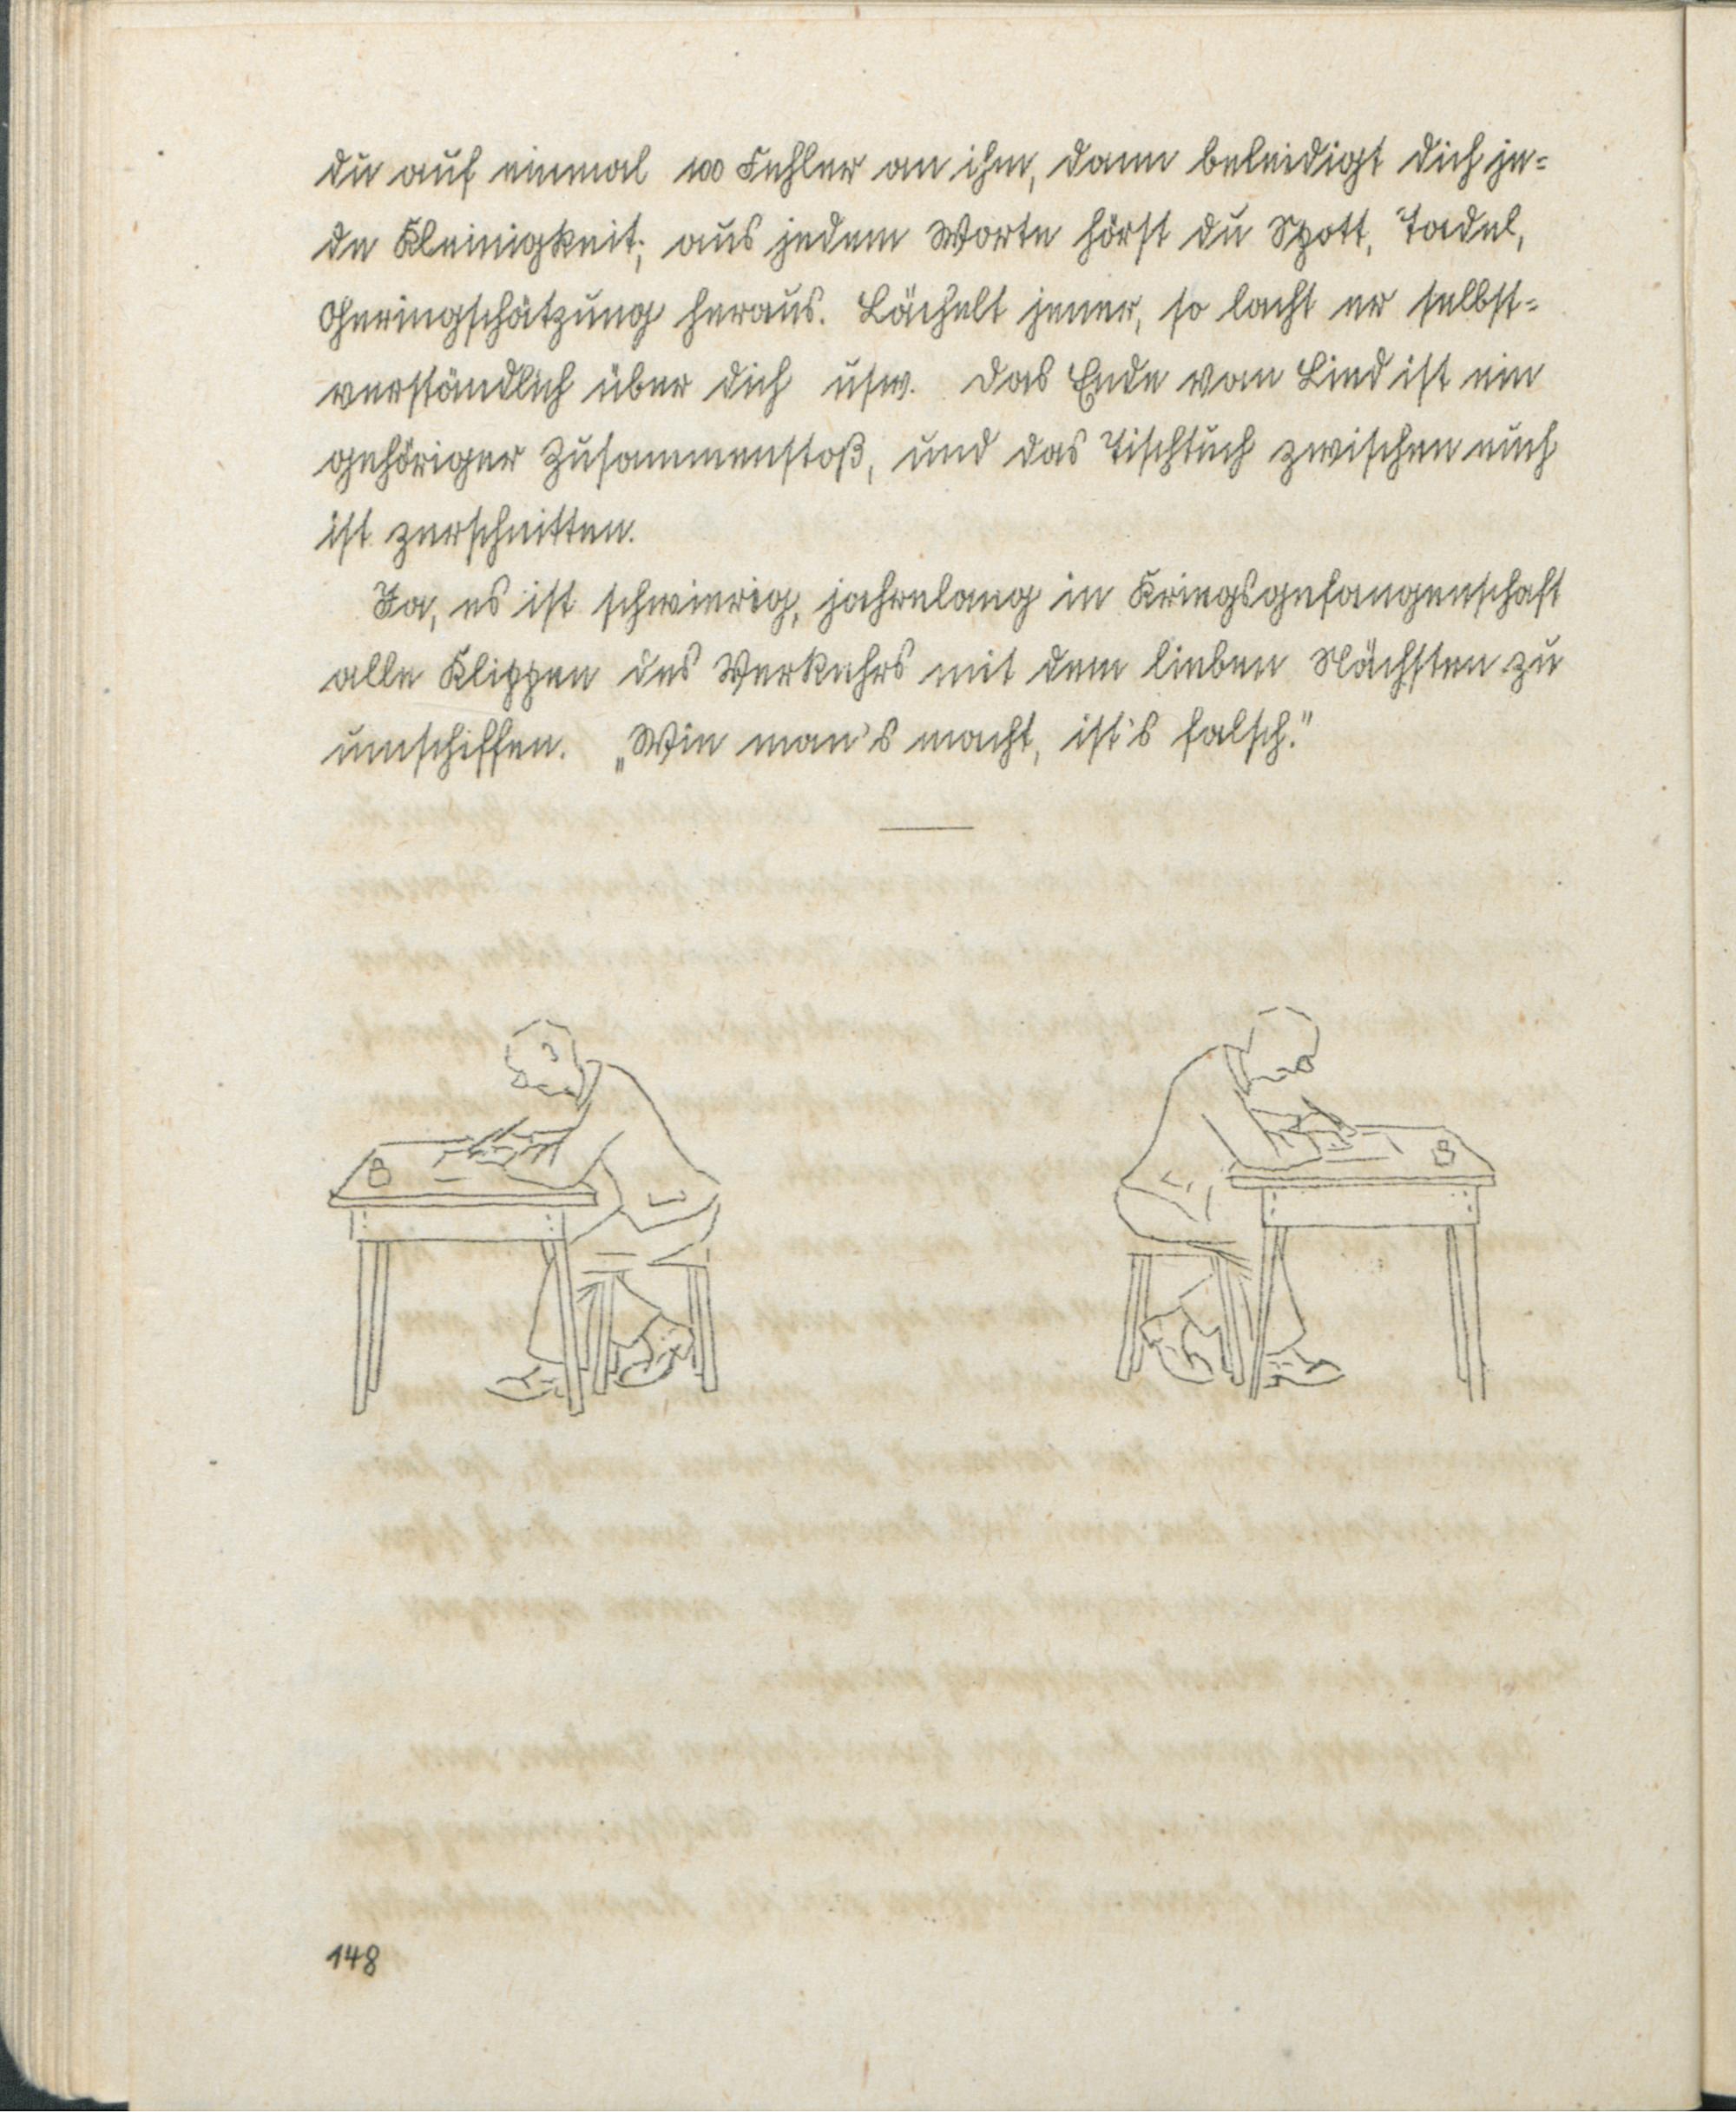 du auf einmal 100 Fehler an ihm, dann beleidigt dich je=
de Kleinigkeit; aus jedem Worte hörst du Spott, Tadel,
Geringschätzung heraus. Lächelt jener, so lacht er selbst=
verständlich über dich usw. Das Ende vom Lied ist ein
gehöriger Zusammenstoß, und das Tischtuch zwischen euch
ist zerschnitten.
Ja, es ist schwierig, jahrelang in Kriegsgefangenschaft
alle Klippen des Verkehrs mit dem lieben Nächsten zu
umschiffen. „Wie man's macht, ist's falsch."
148